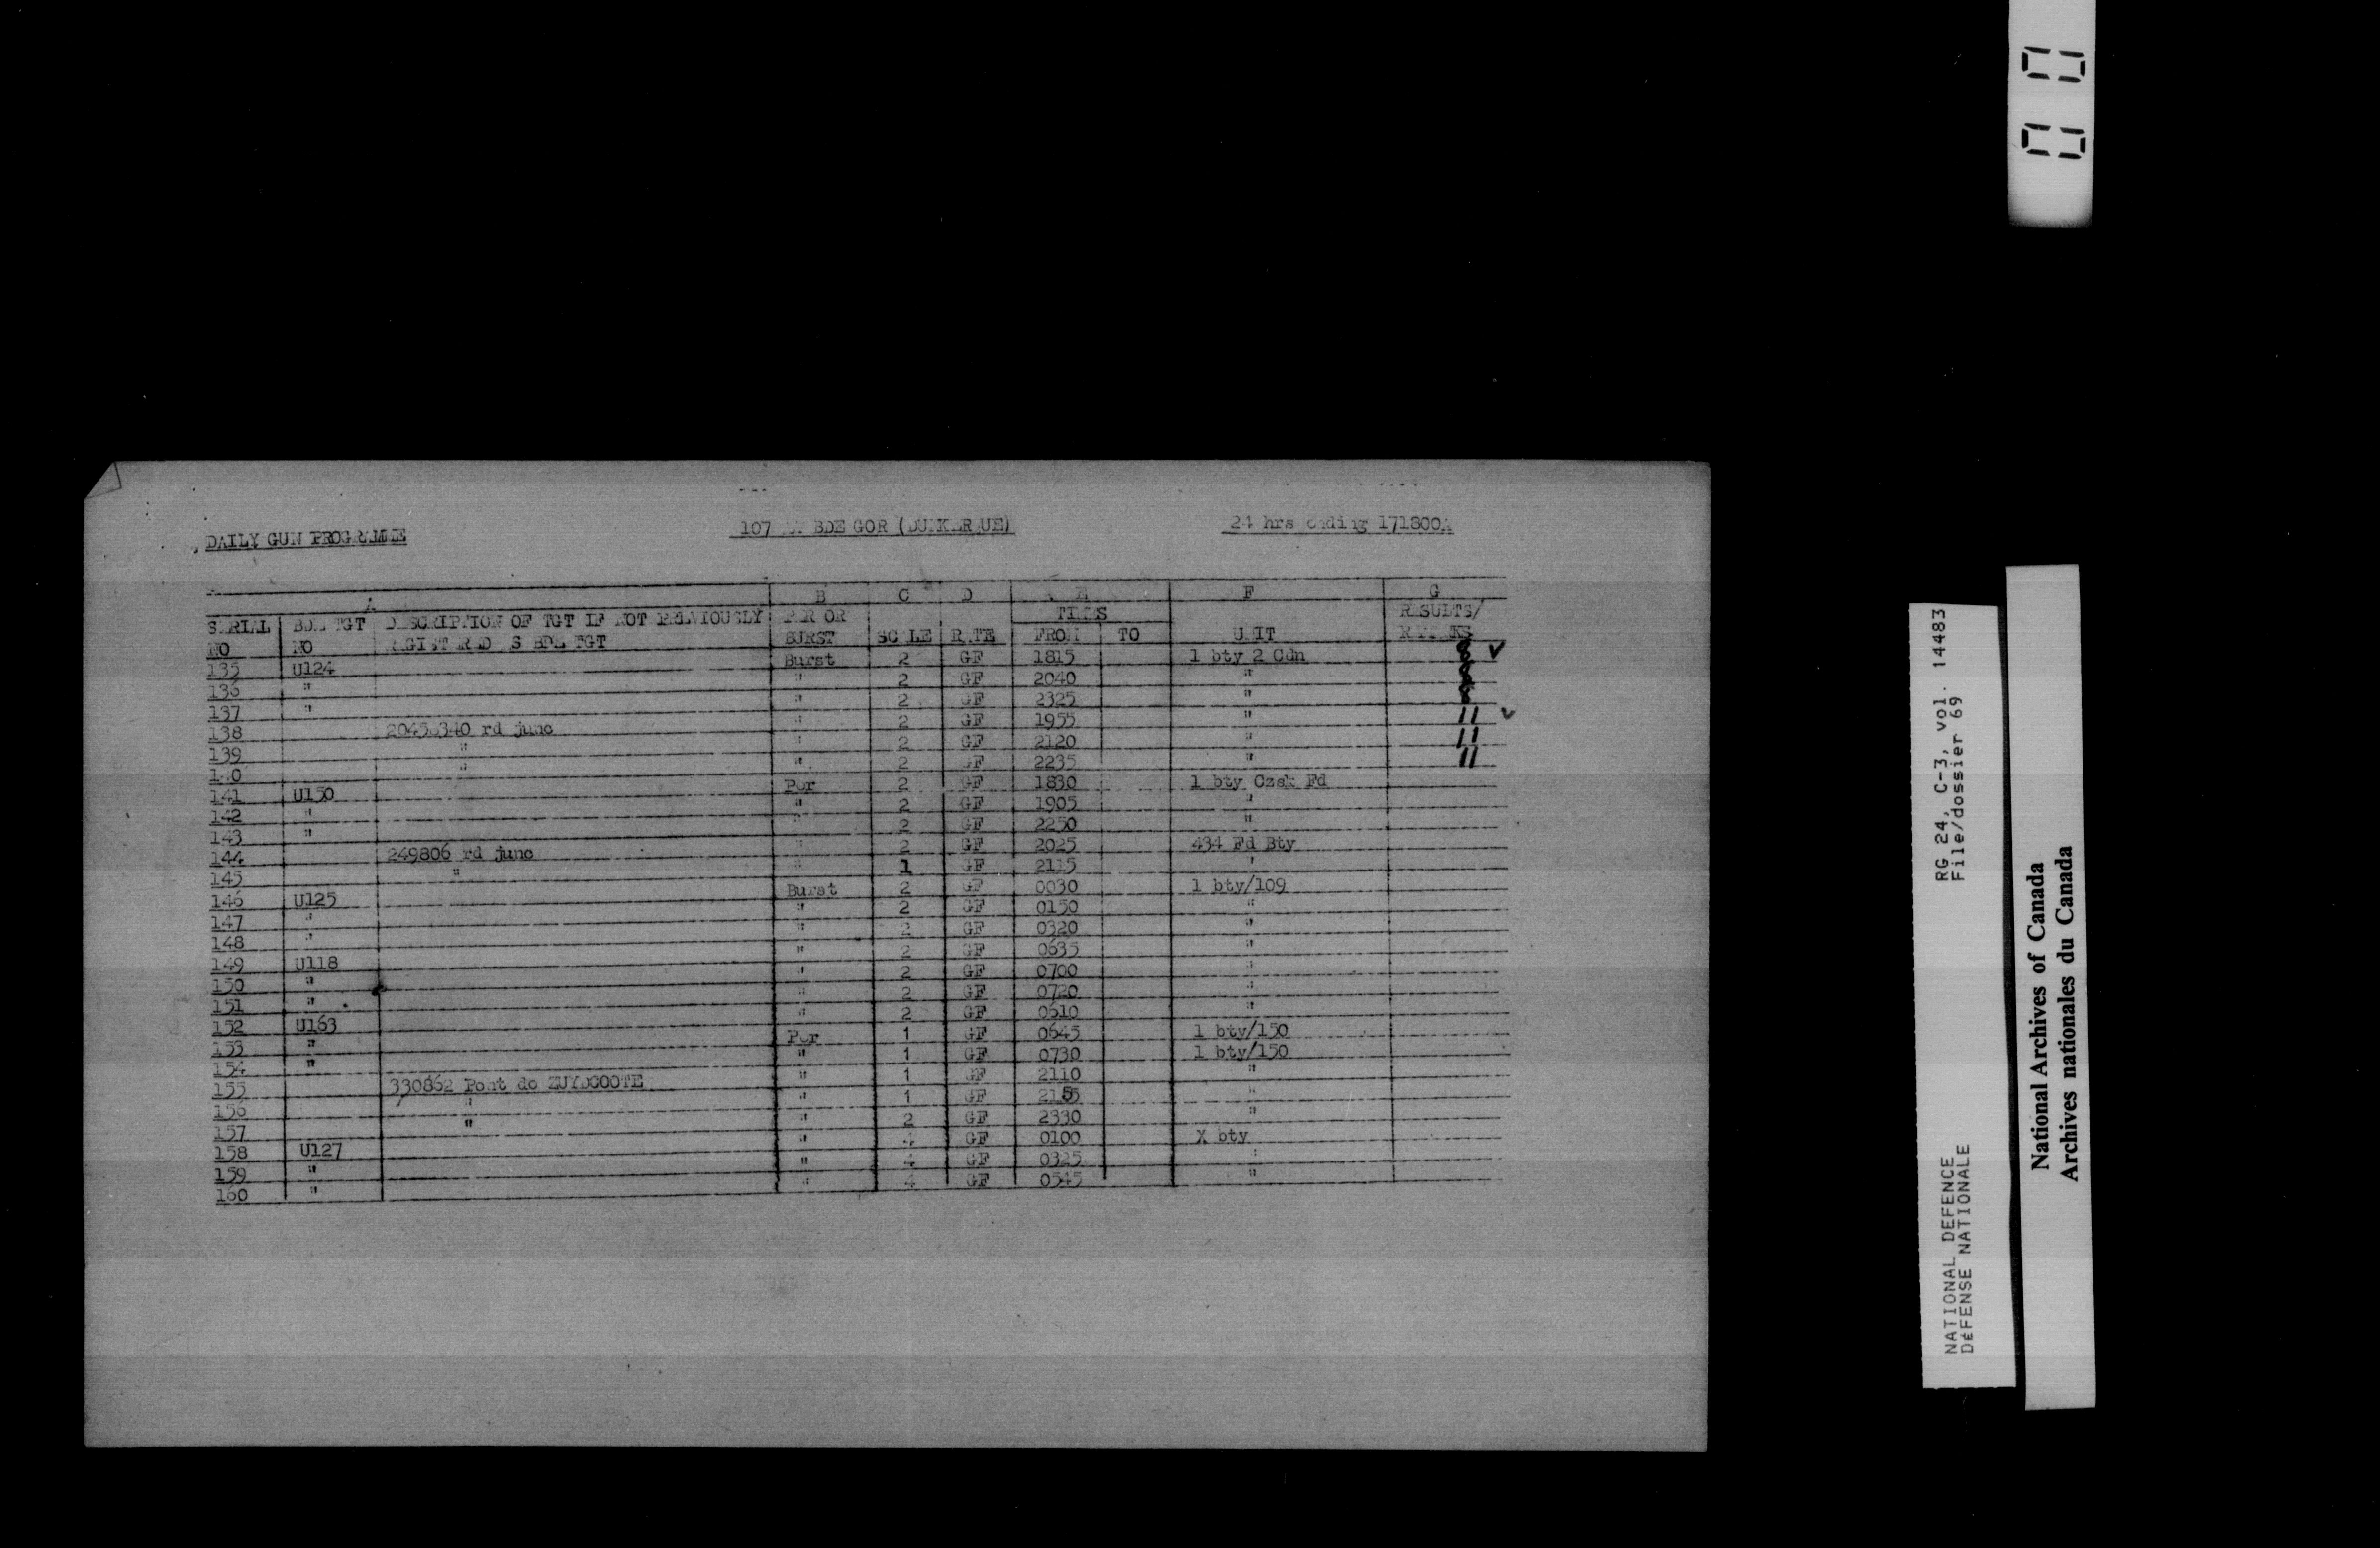 DAILY GUN PROGRAMME 107 BDE GOR (DUNKERQUE) 24 hrs ending 171800A
A B C D E F G
SERIAL NO BDE TGT NO DESCRIPTION OF TGT IF NOT PREVIOUSLY REGISTERED AS BDE TGT PER OR BURST SCALE RATE TIMES FROM TO UNIT RESULTS/ REMARKS
135 U124 Burst 2 GF 1815 1 bty 2 Cdn ✓
136 " " 2 GF 2040 "
137 " " 2 GF 2325 "
138 20458340 rd junc " 2 GF 1955 " 11 ✓
139 " " 2 GF 2120 " 11
140 " " 2 GF 2235 " 11
141 U150 Per 2 GF 1830 1 bty Czsk Fd
142 " " 2 GF 1905 "
143 " " 2 GF 2250 "
144 249806 rd junc " 2 GF 2025 434 Fd Bty
145 " " 1 GF 2115 "
146 U125 Burst 2 GF 0030 1 bty/109
147 " " 2 GF 0150 "
148 " " 2 GF 0320 "
149 U118 " 2 GF 0635 "
150 " " 2 GF 0700 "
151 " " 2 GF 0720 "
152 U163 " 2 GF 0610 "
153 " Per 1 GF 0645 1 bty/150
154 " " 1 GF 0730 1 bty/150
155 330862 Pont de ZUYDCOOTE " 1 GF 2110 "
156 " " 1 GF 2155 "
157 " " 2 GF 2330 "
158 U127 " 4 GF 0100 X bty
159 " " 4 GF 0325 "
160 " " 4 GF 0545 "
NATIONAL DEFENCE RG 24, C-3, vol. 14483
DÉFENSE NATIONALE File/dossier 69
National Archives of Canada
Archives nationales du Canada